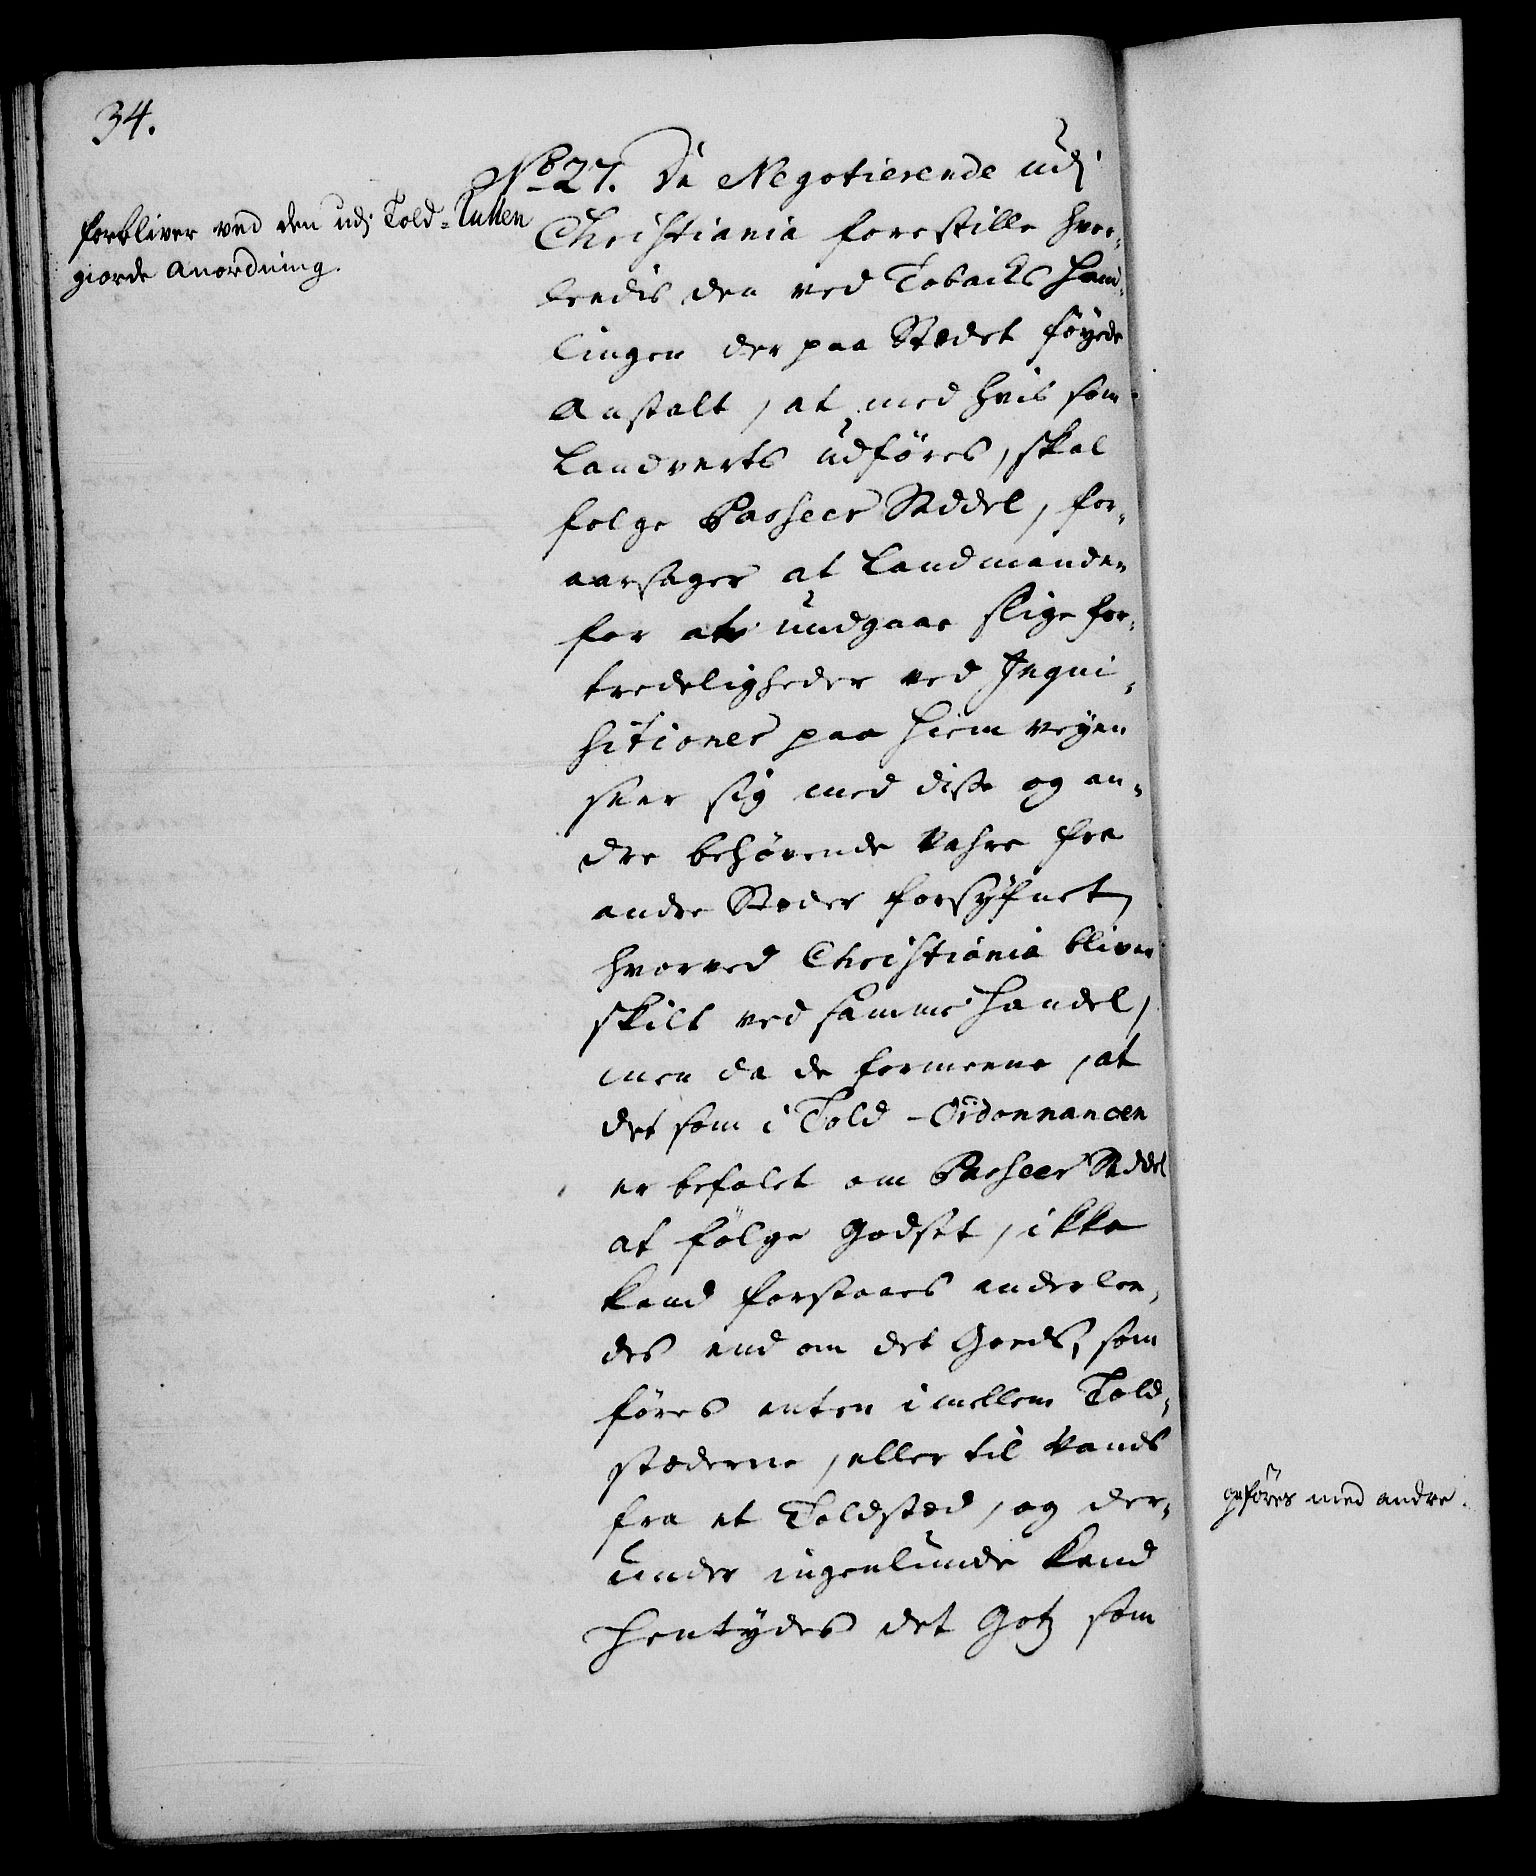 34.
forbliver ved den udj Told=Rullen
giorde Anordning.
No 27. De Negotierende udj
Christiania forestille hvor-
ledis den ved Tobacks Hand-
lingen der paa Stedet føyede
Anstalt, at med hvis som
Landverts udføres, skal
følge Passeer Seddel, for-
aarsager at Landmanden
for at undgaae slige for-
tredeligheder ved Inqui-
sitioner paa Hiem veyen
seer sig med disse og an-
dre behøvende Vahre fra
andre Steder forsyfnet,
hvorved Christiania bliver
skilt ved samme Handel,
men da de formeene, at
det som i Told-Ordonnancen
er befalet om Passeer Seddel
at følge Godset, ikke
kand forstaaes anderlee-
des end om det Goeds, som
føres enten imellem Told-
stæderne, eller til Vands
fra et Toldsted, og der-
under ingenlunde kand
hentydes det Gotz som
opføres med andre.